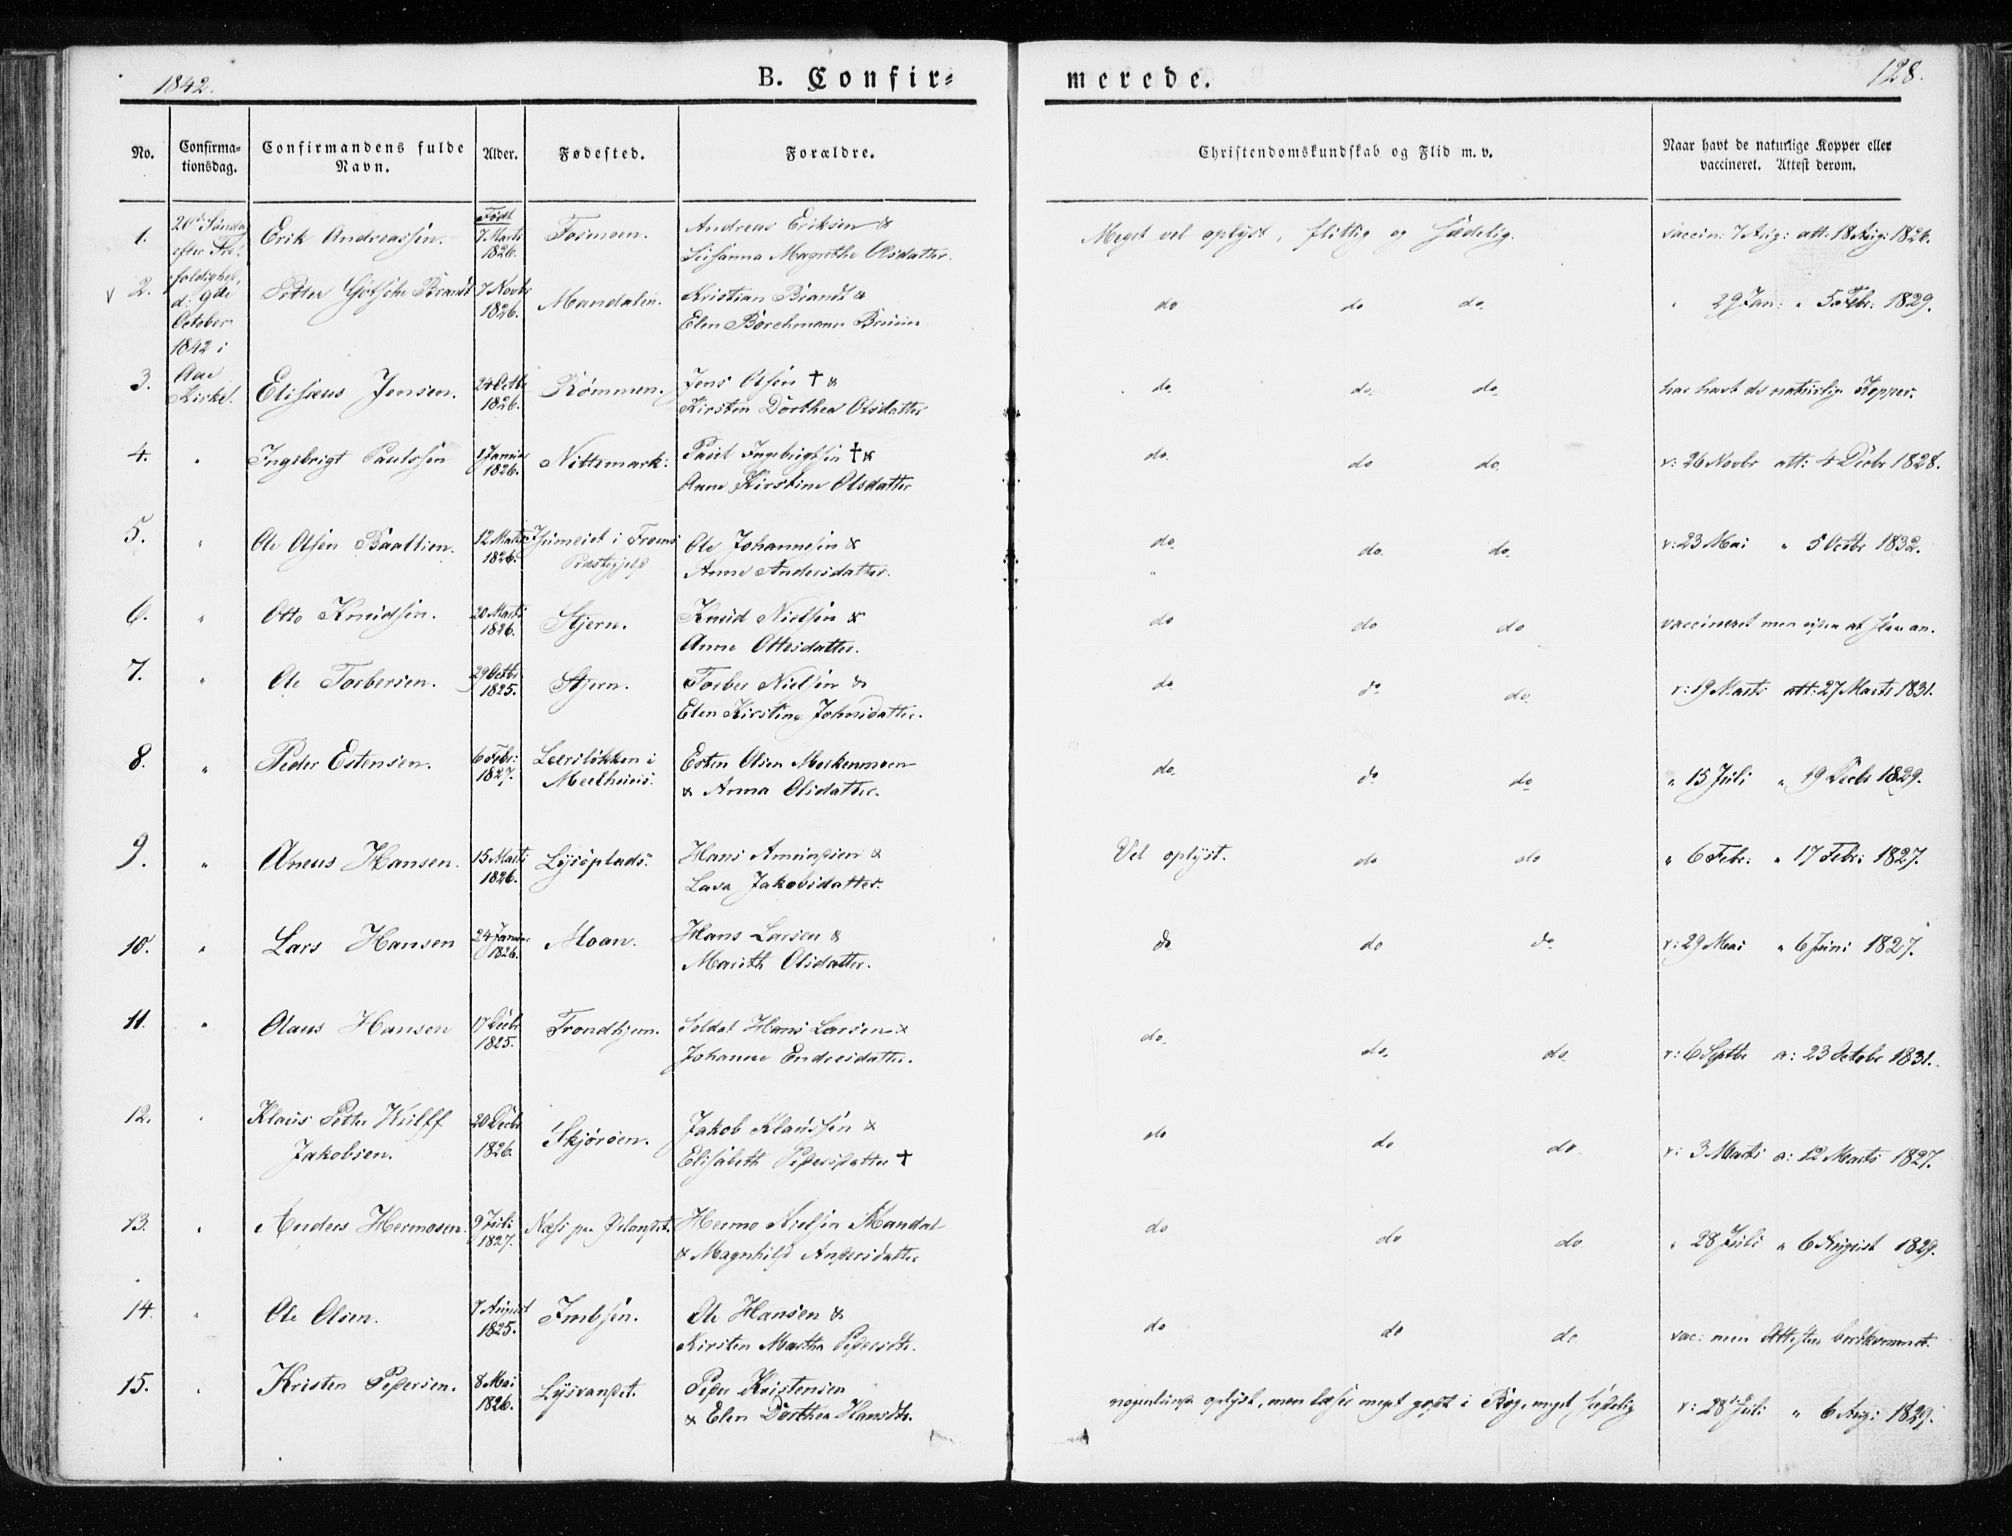 1842.
B. Confir-
merede.
128.
No.
Confirma-
tionsdag.
Confirmandens fulde
Navn.
Alder.
Fødested.
Forældre.
Christendomskundskab og Flid m. v.
Naar havt de naturlige Kopper eller
vaccineret. Attest derom.
20de Søndag
efter Tre-
foldighed,
d: 9de
October
1842 i
Aae
Kirke.
Født
1. Erik Andreassen. 7 Marts 1826. Fosmoen. Andreas Eriksen &
Susanna Magrethe Olsdatter.
Meget vel oplyst, flittig og sædelig. vaccin: 7 Aug: att: 18 Aug: 1826.
2. Petter Gotsche Brandt 7 Novbr 1826. Mandalen. Kristian Brandt &
Elen Borchmann Bruun
do do do " 29 Jan: " 5 Febr: 1829.
3. Elisæus Jensen. 24 Octbr 1826. Rømmen. Jens Olsen † &
Kirsten Dorthea Olsdatter
do. do. do. har havt de naturlige Kopper.
4. " Ingebrigt Paulsen 1 Januar 1826. Nittemark: Paul Ingebrigtsen † &
Anne Kirstine Olsdatter
do. do do. v: 26 Novbr att: 4 Decbr 1828.
5. " Ole Olsen Baatlien. 12 Marts 1826. i Præstegjeld Ole Johannesen &
Anne Andersdatter.
do. do. do. v: 23 Mai " 5 Octbr 1832.
6. " Otto Knudsen. 20 Marts 1826. Stjern. Knud Nielsen &
Anne Ottesdatter.
do do do vaccineret men uden at slaa an.
7. " Ole Torbersen. 29 Octbr 1825. Stjern. Torber Nielsen &
Elen Kirstine Johnsdatter.
do do do. v: 19 Marts att: 27 Marts 1831.
8. " Peder Estensen. 6 Febr: 1827. Leersløkken i
Meelhuus. Esten Olsen Merkenmoen
& Anna Olsdatter.
do. do do " 15 Juli " 19 Decbr 1829.
9. " Aneus Hansen. 15 Marts 1826. Lysøplads. Hans Amundsen &
Lava Jakobsdatter.
Vel oplyst. do do " 6 Febr: " 17 Febr: 1827.
10. " Lars Hansen 24 Januar 1826. Moan. Hans Larsen &
Marith Olsdatter.
do do do v: 29 Mai " 6 Juni 1827.
11. " Olaus Hansen 17 Decbr 1825. Trondhjem. Soldat Hans Larsen &
Johanne Endresdatter.
do. do. do. v: 6 Septbr a: 23 Octobr 1831.
12. " Klaus Petter Wulff
Jakobsen. 20 Decbr 1826. Skjørøen. Jakob Klaussen &
Elisabeth Pedersdatter †
do do do. v: 3 Marts a: 12 Marts 1827.
13. " Anders Hermosen. 9 Juli 1827. Næss paa Ørlandet. Hermo Nielsen Mandal
& Magnhild Andersdatter
do do do. " 28 Juli " 6 August 1829.
14. " Ole Olsen. 7 August 1825. Imbsen. Ole Hansen &
Kirsten Martha Pedersdtr.
do do do vac: men Attesten bortkommet.
15. " Kristen Pedersen. 8 Mai 1826. Lysvandet. Peder Kristensen
& Elen Dorthea Hansdtr.
nogenlunde oplyst, men læser meget godt i Bog, meget sædelig v: 28 Juli " 6 Aug: 1829.